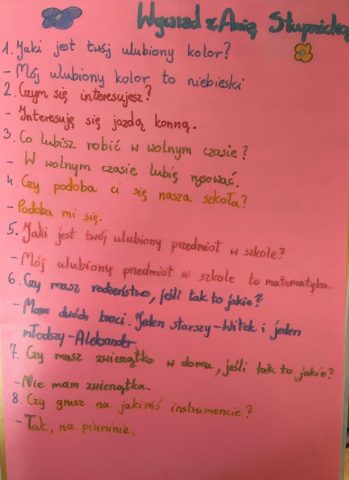 Wywiad z Anią Słupnicką
1. Jaki jest twój ulubiony kolor?
- Mój ulubiony kolor to niebieski
2. Czym się interesujesz?
- Interesuję się jazdą konną.
3. Co lubisz robić w wolnym czasie?
- W wolnym czasie lubię rysować.
4. Czy podoba ci się nasza szkoła?
- Podoba mi się.
5. Jaki jest twój ulubiony przedmiot w szkole?
- Mój ulubiony przedmiot w szkole to matematyka.
6. Czy masz rodzeństwo, jeśli tak to jakie?
- Mam dwóch braci. Jeden starszy-Witek i jeden
młodszy-Aleksander
7. Czy masz zwierzątko w domu, jeśli tak to jakie?
- Nie mam zwierzątka.
8 Czy grasz na jakimś instrumencie?
- Tak, na pianinie.